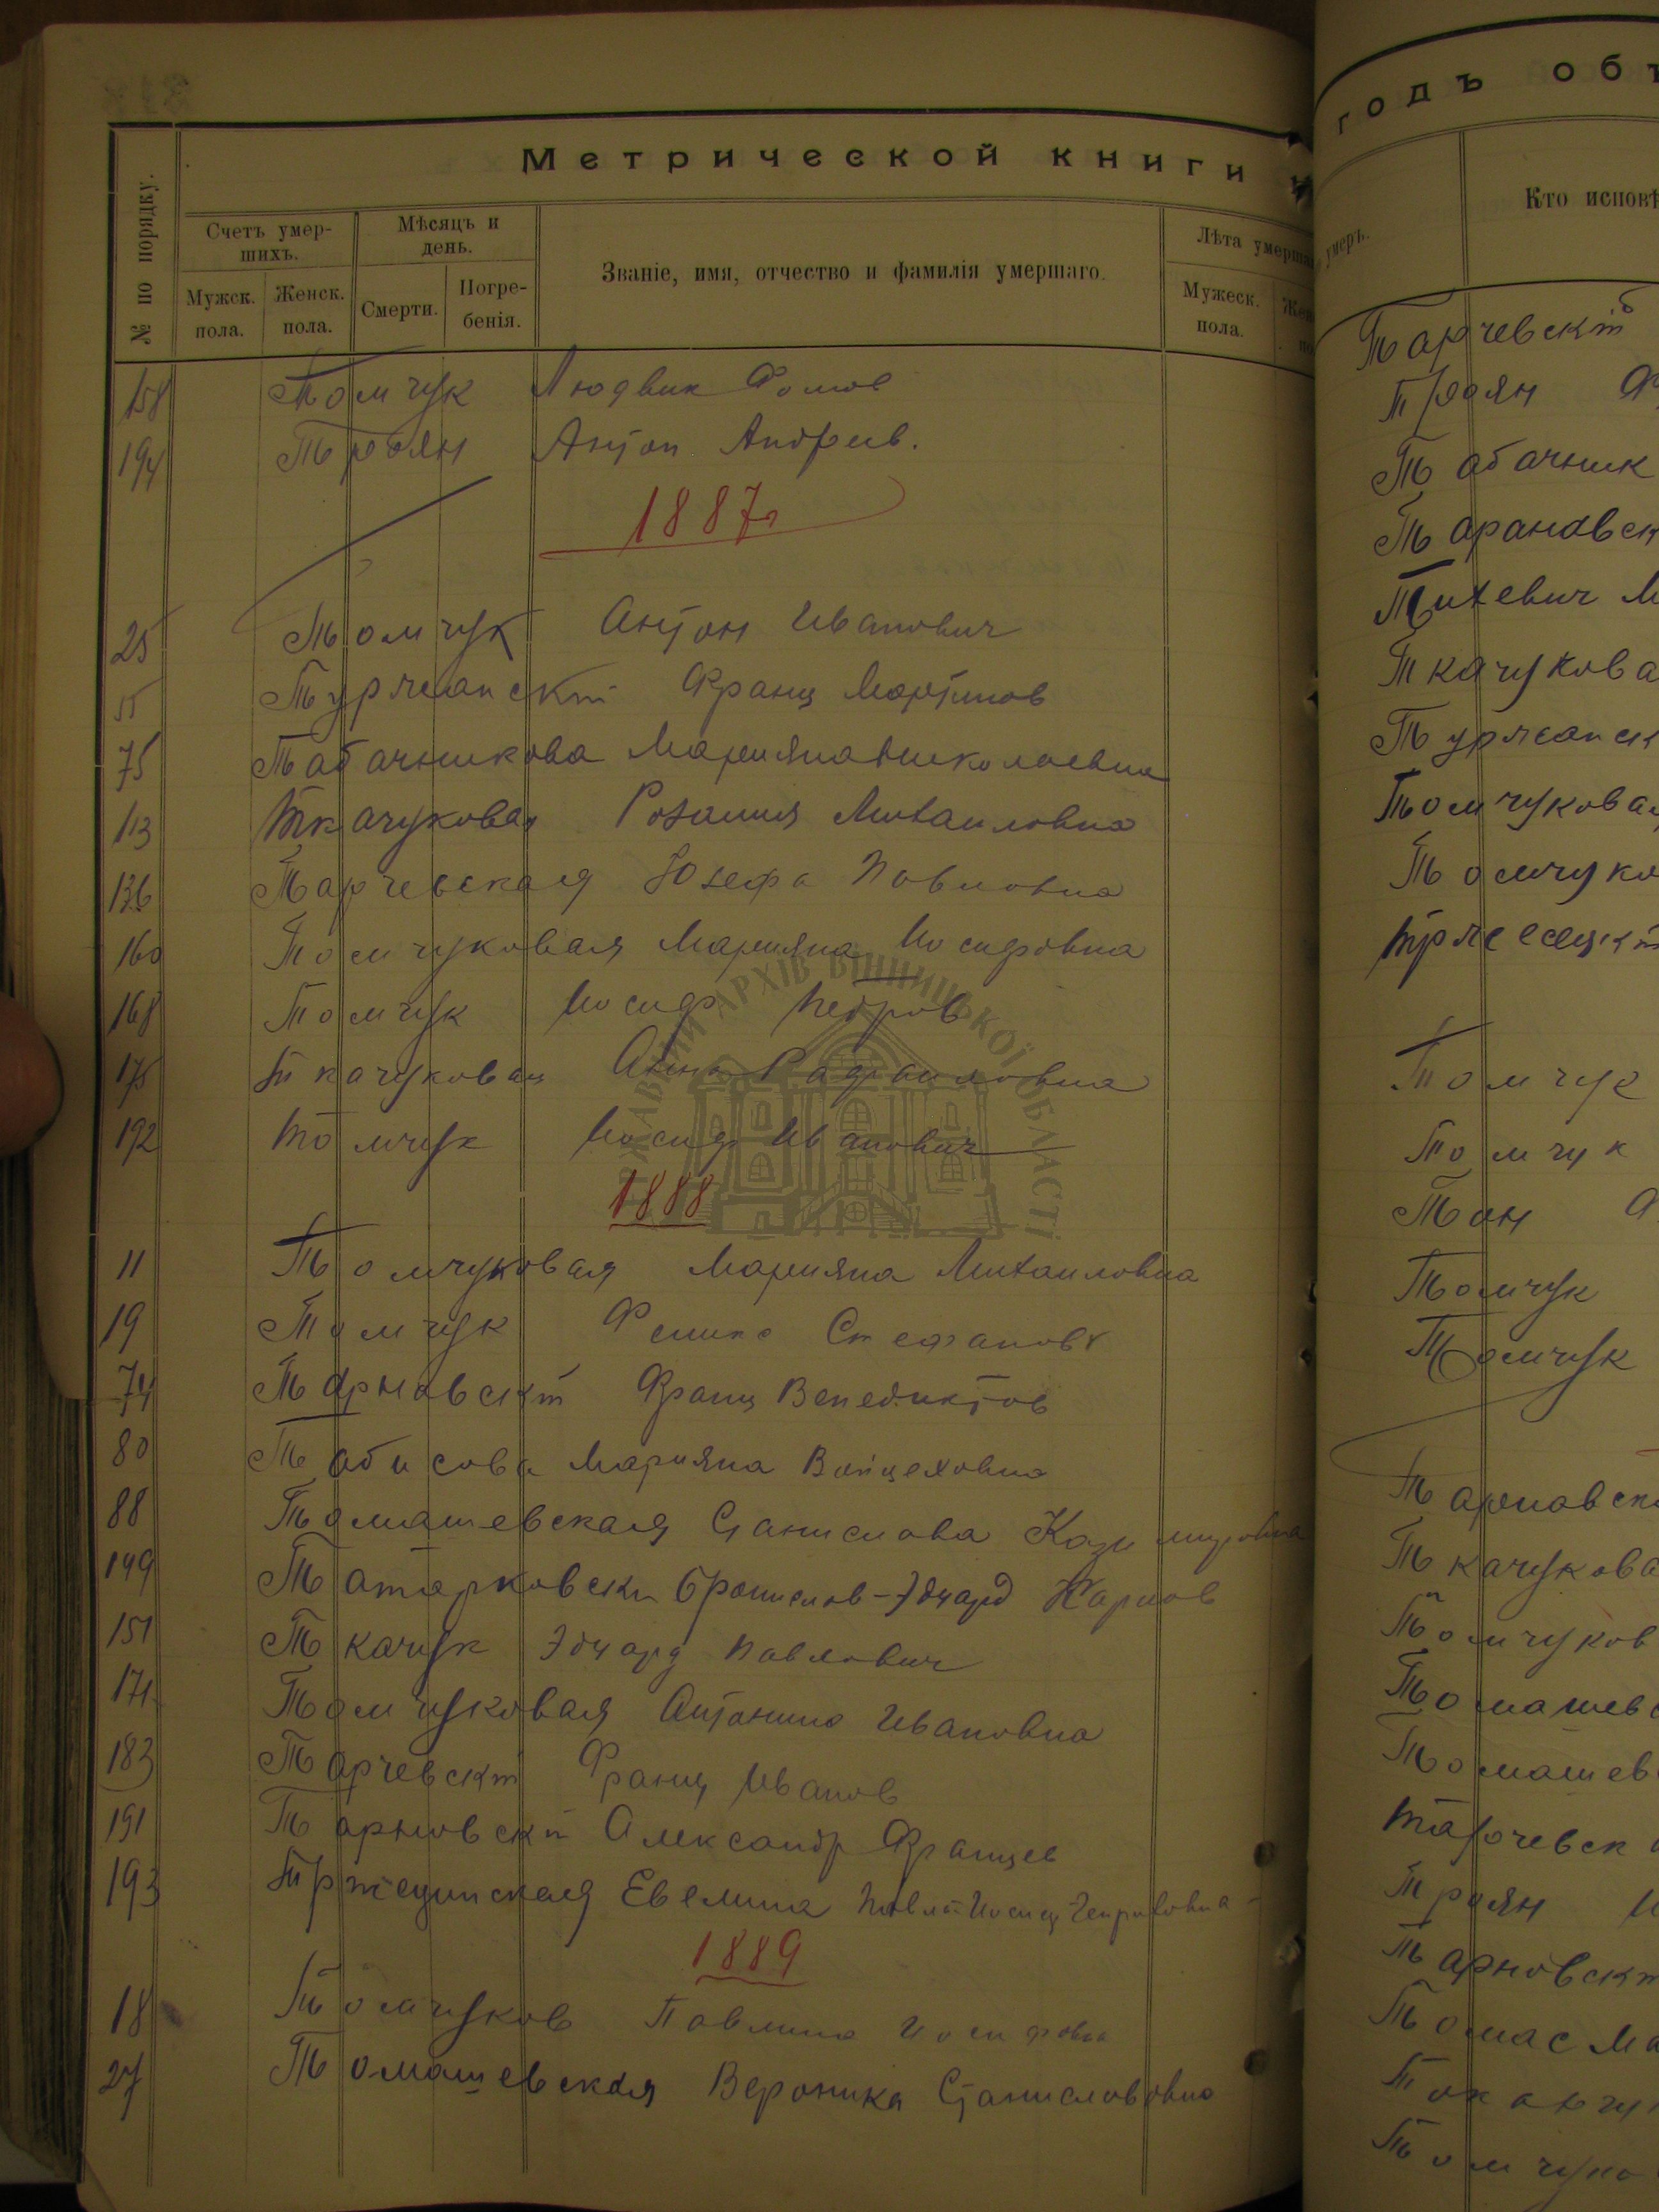 Метрической книги
№ по порядку.
Счетъ умер-
шихъ.
Мѣсяцъ и
день.
Званіе, имя, отчество и фамилія умершаго.
Лѣта умерша
Мужск.
пола.
Женск.
пола.
Смерти.
Погре-
бенія.
Мужеск.
пола.
158 Томчук Людвик Фомов
194 Троян Антон Андреев.
1887г
25 Томчук Антон Иванович
55 Туржанскій Франц Мартинов
75 Табачникова Марияна Николаевна
113 Ткачуковая Розалия Михаиловна
136 Тарчевская Юзефа Павловна
160 Томчуковая Марияна Иосифовна
168 Томчук Иосиф Петров
175 Ткачуковая Анна Рафаиловна
192 Томчук Иосиф Иванович
1888
11 Томчуковая Марияна Михаиловна
19 Томчук Стефанов
74 Тарновскій Франц Венедиктов
80 Табисова Марияна Войцеховна
88 Томашевская Станислава Казимировна
149 Татарковски Бронислав-Эдуард Карлов
151 Ткачук Эдуард Павлович
171 Томчуковая Антонина Ивановна
183 Тарчевскій Франц Иванов
191 Тарновскій Александр Францев
193 Евелина
1889
18 Томчуков Павлина Иосифовна
27 Томашевская Вероника Станиславовна
ДЕРЖАВНИЙ АРХІВ ВІННИЦЬКОЇ ОБЛАСТІ
годъ объ
умеръ.
Кто исповѣ
Тарчевскій
Троян
Табачник
Тарановск
Тихевич М
Ткачукова
Туржанск
Томчуковая
Томчуко
Томчук
Томчук
Тон
Томчук
Томчук
Тарновск
Ткачукова
Томчуков
Томашевс
Томашев
Тарчевск
Троян И
Тарновскі
Томас Ма
Томчуко